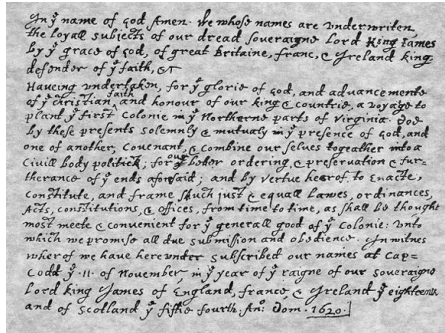 In yͤ name of god Amen. We whose names are underwriten,
the loyall subjects of our dread soveraigne Lord King James
by yͤ grace of God, of great Britaine, franc, & Ireland king,
defender of yͤ faith, &c
Haveing undertaken, for yͤ glorie of God, and advancemente
of yͤ christian faith and honour of our king & countrie, a voyage to
plant yͤ first colonie in yͤ Northerne parts of Virginia. Doe
by these presents solemnly & mutualy in yͤ presence of God, and
one of another, covenant, & combine our selves togeather into a
Civill body politick, for our better ordering, & preservation & fur=
therance of yͤ ends aforesaid; and by vertue hearof to enacte,
constitute, and frame shuch just & equall lawes, ordinances,
Acts, constitutions, & offices, from time to time, as shall be thought
most meete & convenient for yͤ generall good of yͤ Colonie: unto
which we promise all due submission and obedience. In witnes
wherof we have hereunder subscribed our names at Cap=
Codd yͤ ·11· of November in yͤ year of yͤ raigne of our soveraigne
Lord king James of England, france, & Ireland yͤ eighteenth
and of Scotland yͤ fiftie fourth. Anͦ: Dom. 1620.